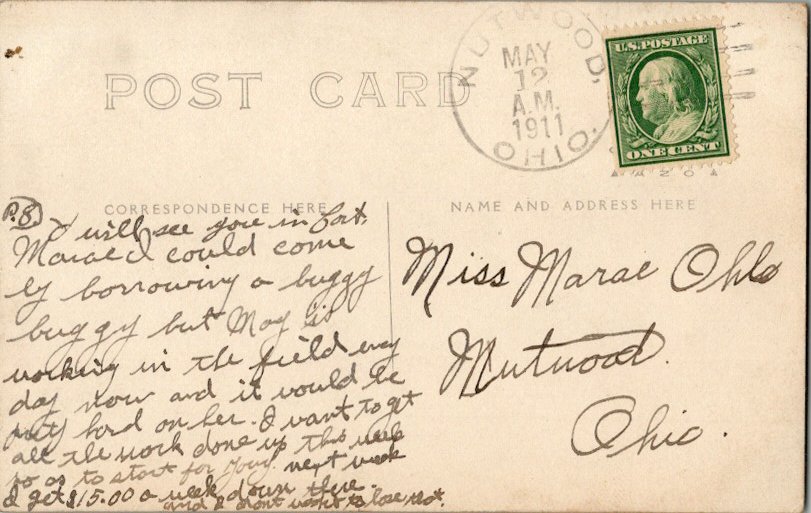 POST CARD
NUTWOOD, OHIO.
MAY
12
A.M.
1911
U.S. POSTAGE
ONE CENT
CORRESPONDENCE HERE
NAME AND ADDRESS HERE
P.8. I will see you in
Marae I could come
by borrowing a buggy
buggy but May is
working in the field evry
day now and it would be
hard on her. I want to get
all the work done up this week
so as to start for next week
I get $15.00 a week down there.
and I dont want to lose that.
Miss Marae Ohls
Nutwood.
Ohio.
AZO